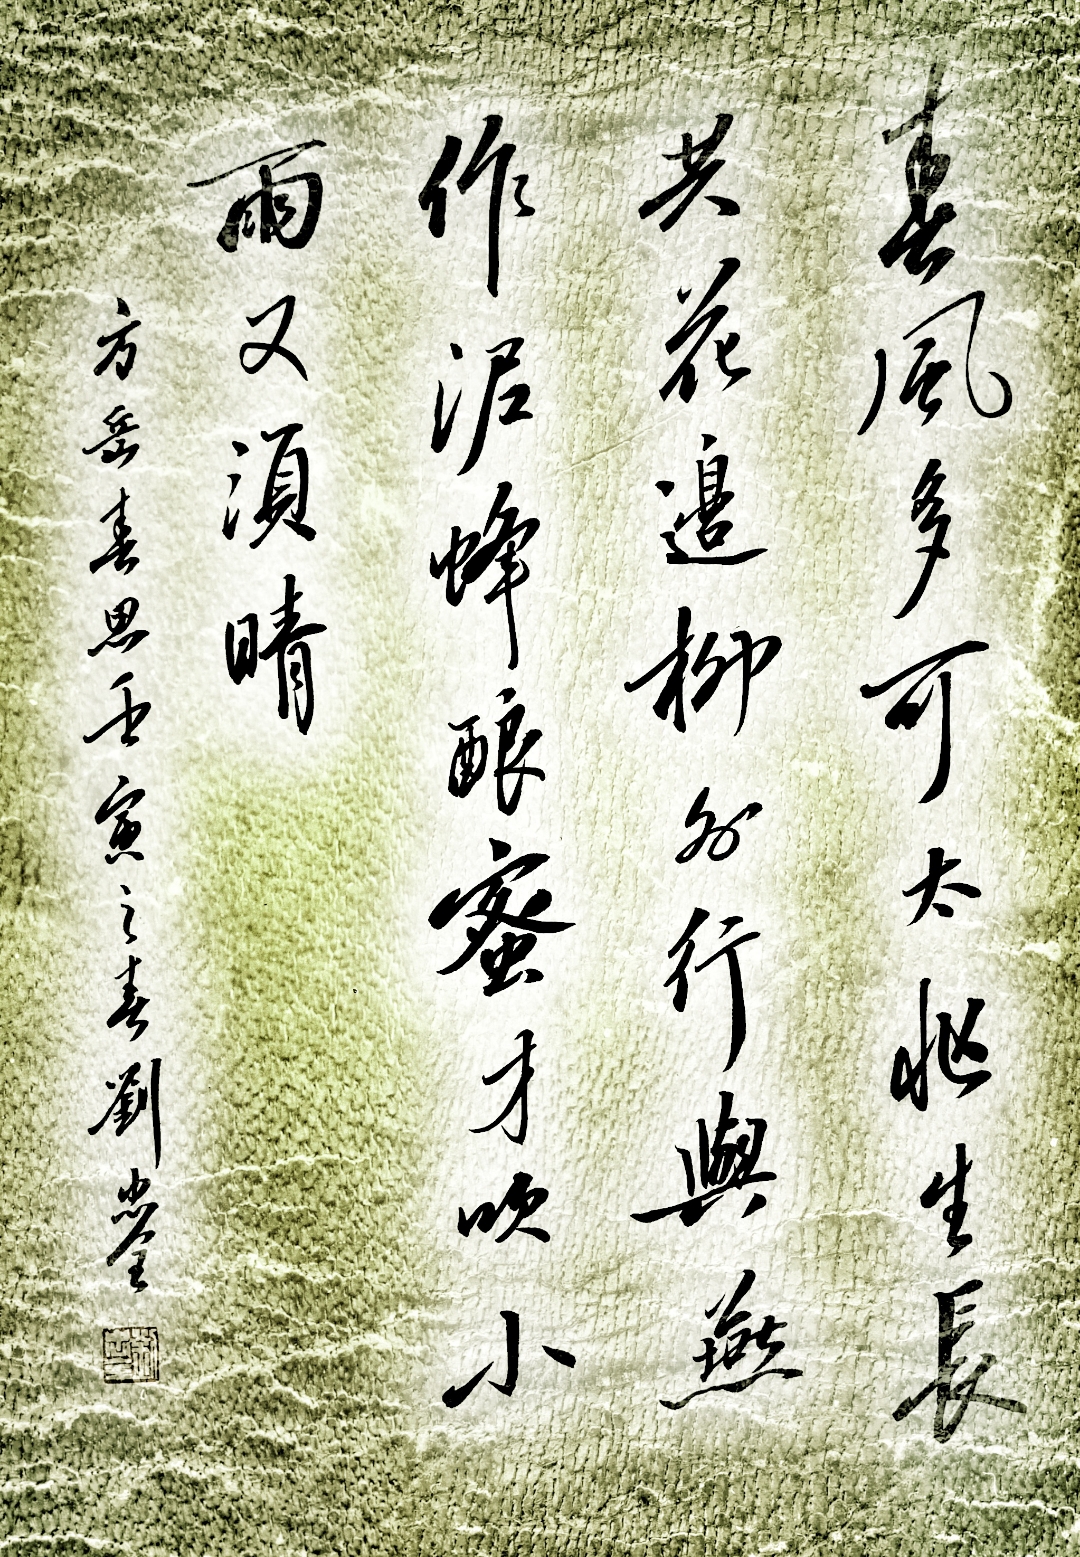 春風多可太忙生長
共花邊柳外行與燕
作泥蜂酿蜜才吹小
雨又須晴
方岳春思壬寅之春劉